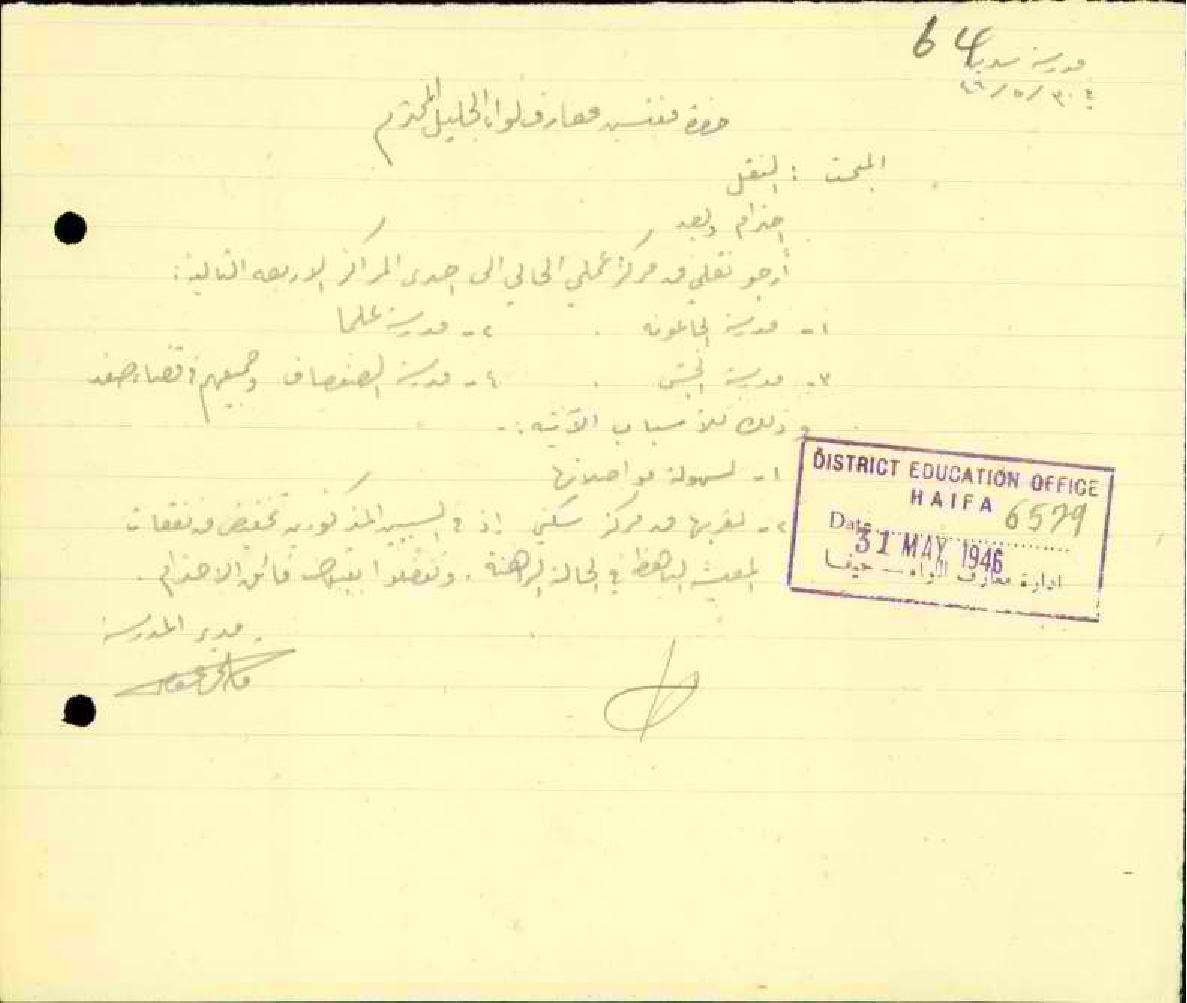 64
مدرسة
٣٠/٥/٤٦
حضرة مفتش معارف لواء الجليل المحترم
المبحث : النقل
احترام وبعد
أرجو نقلي من مركز عملي الحالي الى احدى المراكز الاربعه التالية:
١- مدرسة الجاعونه ٢- مدرسة علما
٣- مدرسة الجش ٤- مدرسة الصفصاف وجميعهم في قضاء صفد
وذلك للأسباب الآتيه :-
١- لسهولة مواصلاتها
٢- لقربها من مركز سكني إذ في السببين المذكورين تخفيض من نفقات
المعيشة الباهظة في الحالة الراهنة . وتفضلوا بقبول فائق الاحترام .
مدير المدرسة
DISTRICT EDUCATION OFFICE
HAIFA
6579
Date
31 MAY 1946
ادارة معارف اللواء — حيفا